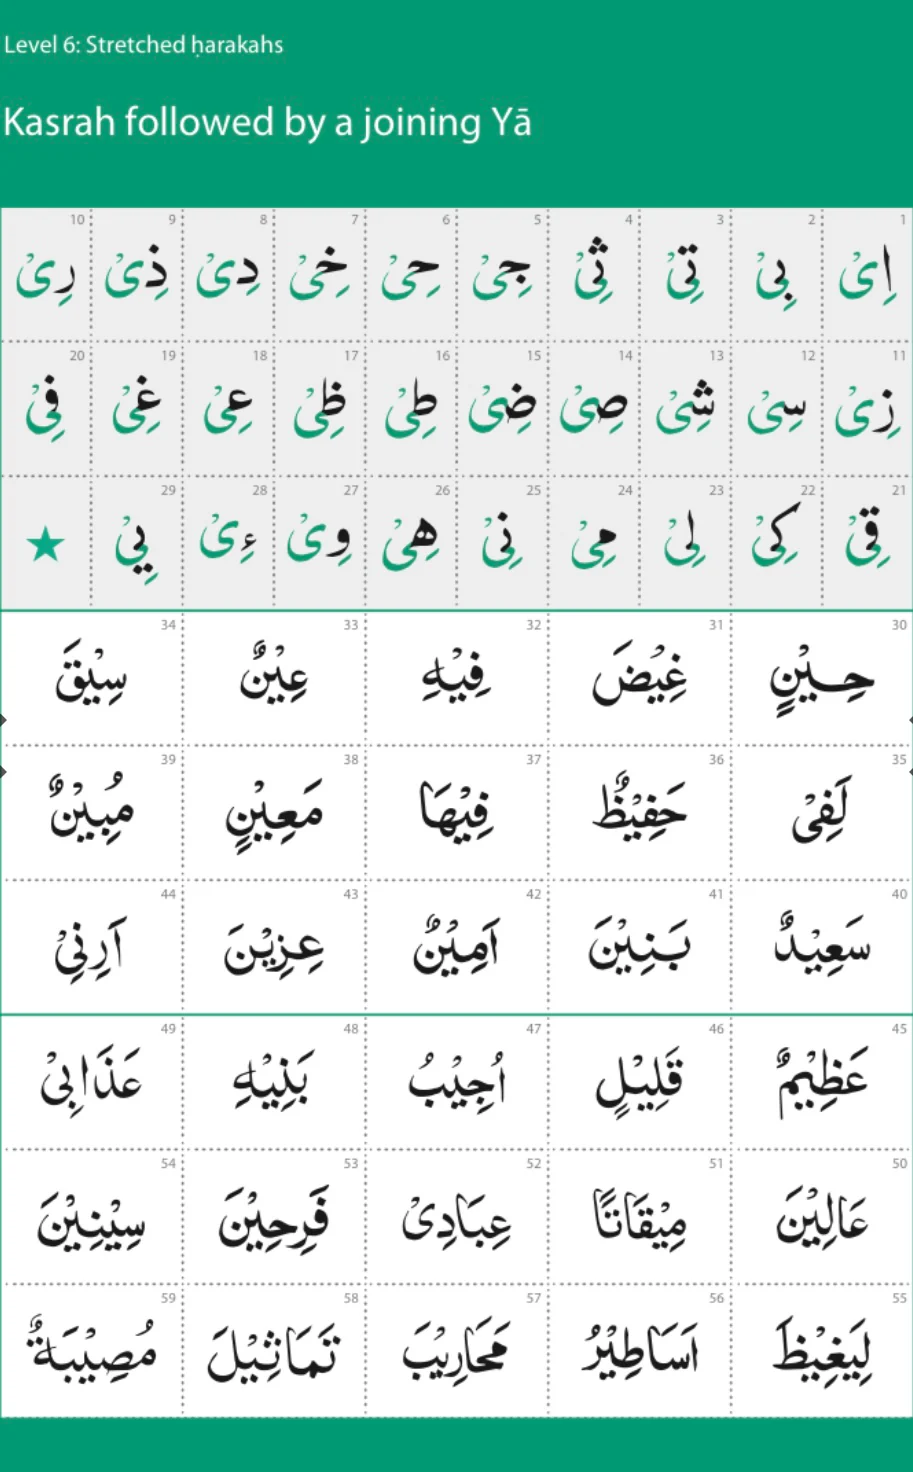 Level 6: Stretched ḥarakahs
Kasrah followed by a joining Yā
1 2 3 4 5 6 7 8 9 10
اِیْ بِیْ تِیْ ثِیْ جِیْ حِیْ خِیْ دِیْ ذِیْ رِیْ
11 12 13 14 15 16 17 18 19 20
زِیْ سِیْ شِیْ صِیْ ضِیْ طِیْ ظِیْ عِیْ غِیْ فِیْ
21 22 23 24 25 26 27 28 29
قِیْ کِیْ لِیْ مِیْ نِیْ هِیْ وِیْ ءِیْ یِیْ ★
30 31 32 33 34
حِیْنٍ غِیْضَ فِیْهِ عِیْنٌ سِیْقَ
35 36 37 38 39
لَفِیْ حَفِیْظٌ فِیْهَا مَعِیْنٍ مُبِیْنٌ
40 41 42 43 44
سَعِیْدٌ بَنِیْنَ اَمِیْنٌ عِزِیْنَ اَرِنِیْ
45 46 47 48 49
عَظِیْمٌ قَلِیْلٍ اُجِیْبُ بَنِیْهِ عَذَابِیْ
50 51 52 53 54
عَالِیْنَ مِیْقَاتًا عِبَادِیْ فَرِحِیْنَ سِیْنِیْنَ
55 56 57 58 59
لِیَغِیْظَ اَسَاطِیْرُ مَحَارِیْبَ تَمَاثِیْلَ مُصِیْبَةٌ